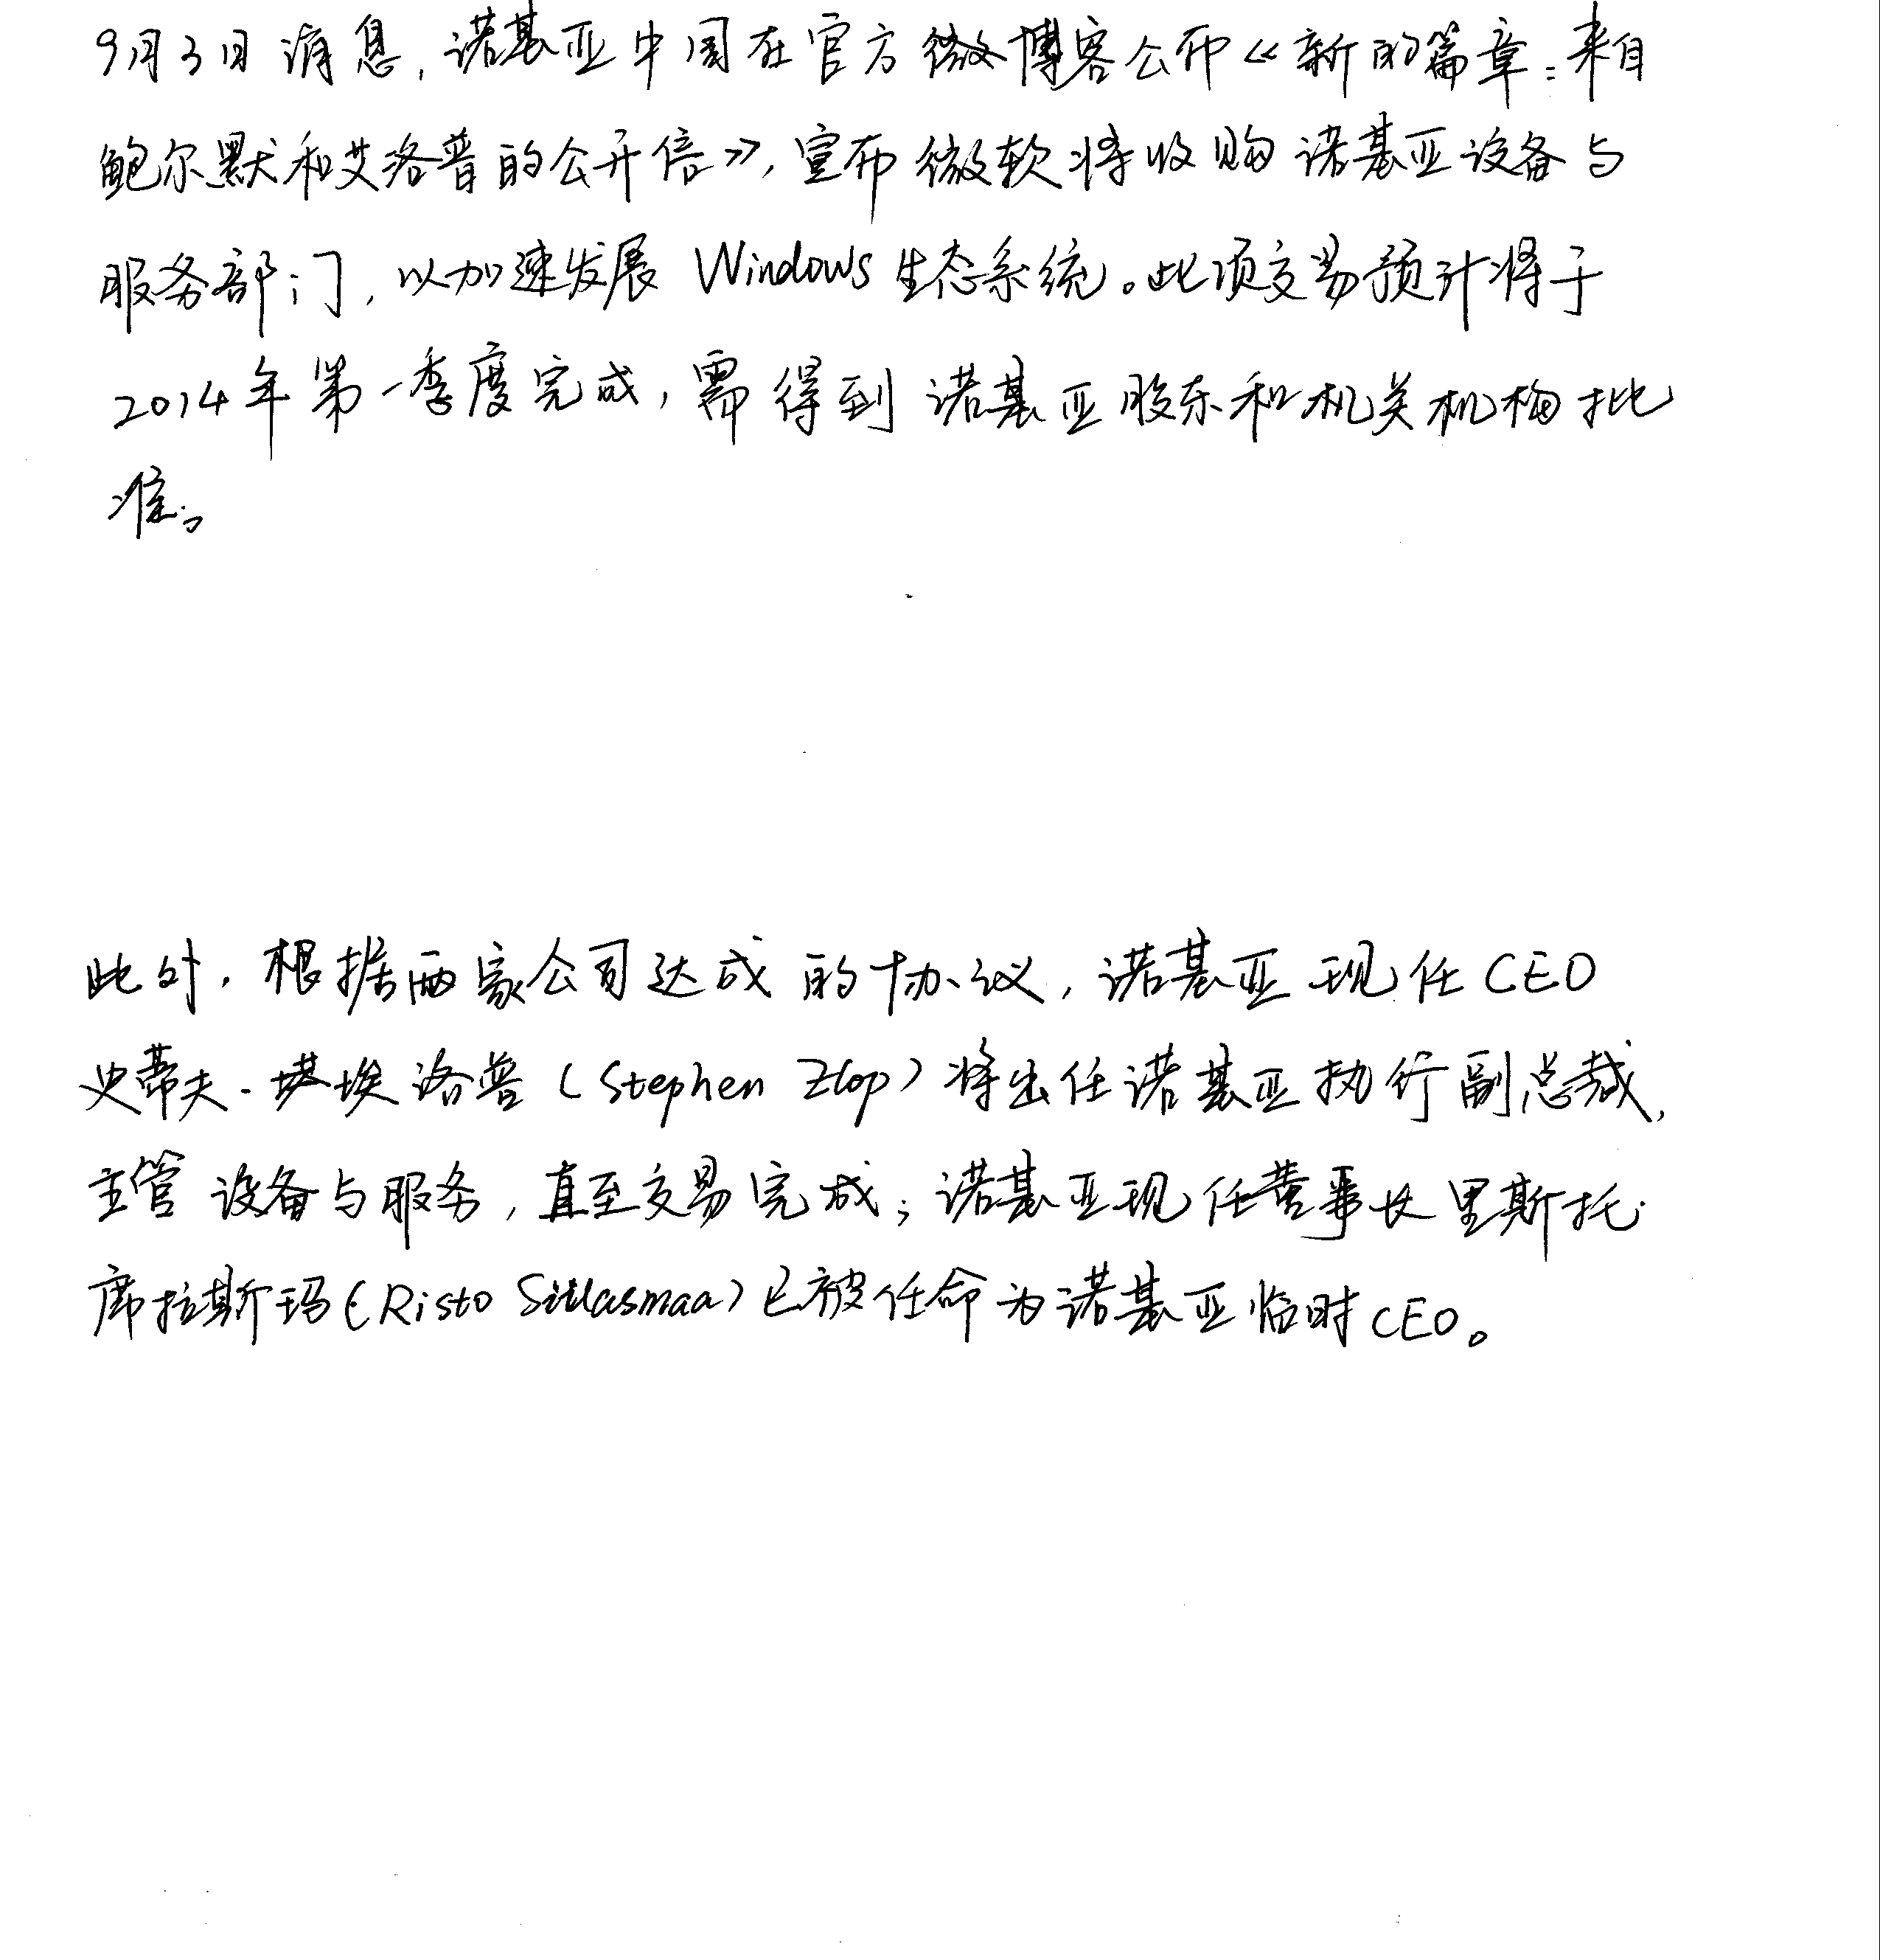 9月3日消息,诺基亚中国在官方微博客公布《新的篇章:来自
鲍尔默和艾洛普的公开信》,宣布微软将收购诺基亚设备与
服务部门,以加速发展Windows生态系统。此项交易预计将于
2014年第一季度完成,需得到诺基亚股东和机关机构批
准。
此外,根据两家公司达成的协议,诺基亚现任CEO
史蒂夫·埃洛普(Stephen Elop)将出任诺基亚执行副总裁,
主管设备与服务,直至交易完成;诺基亚现任董事长里斯托·
席拉斯玛(Risto Siilasmaa)已被任命为诺基亚临时CEO。